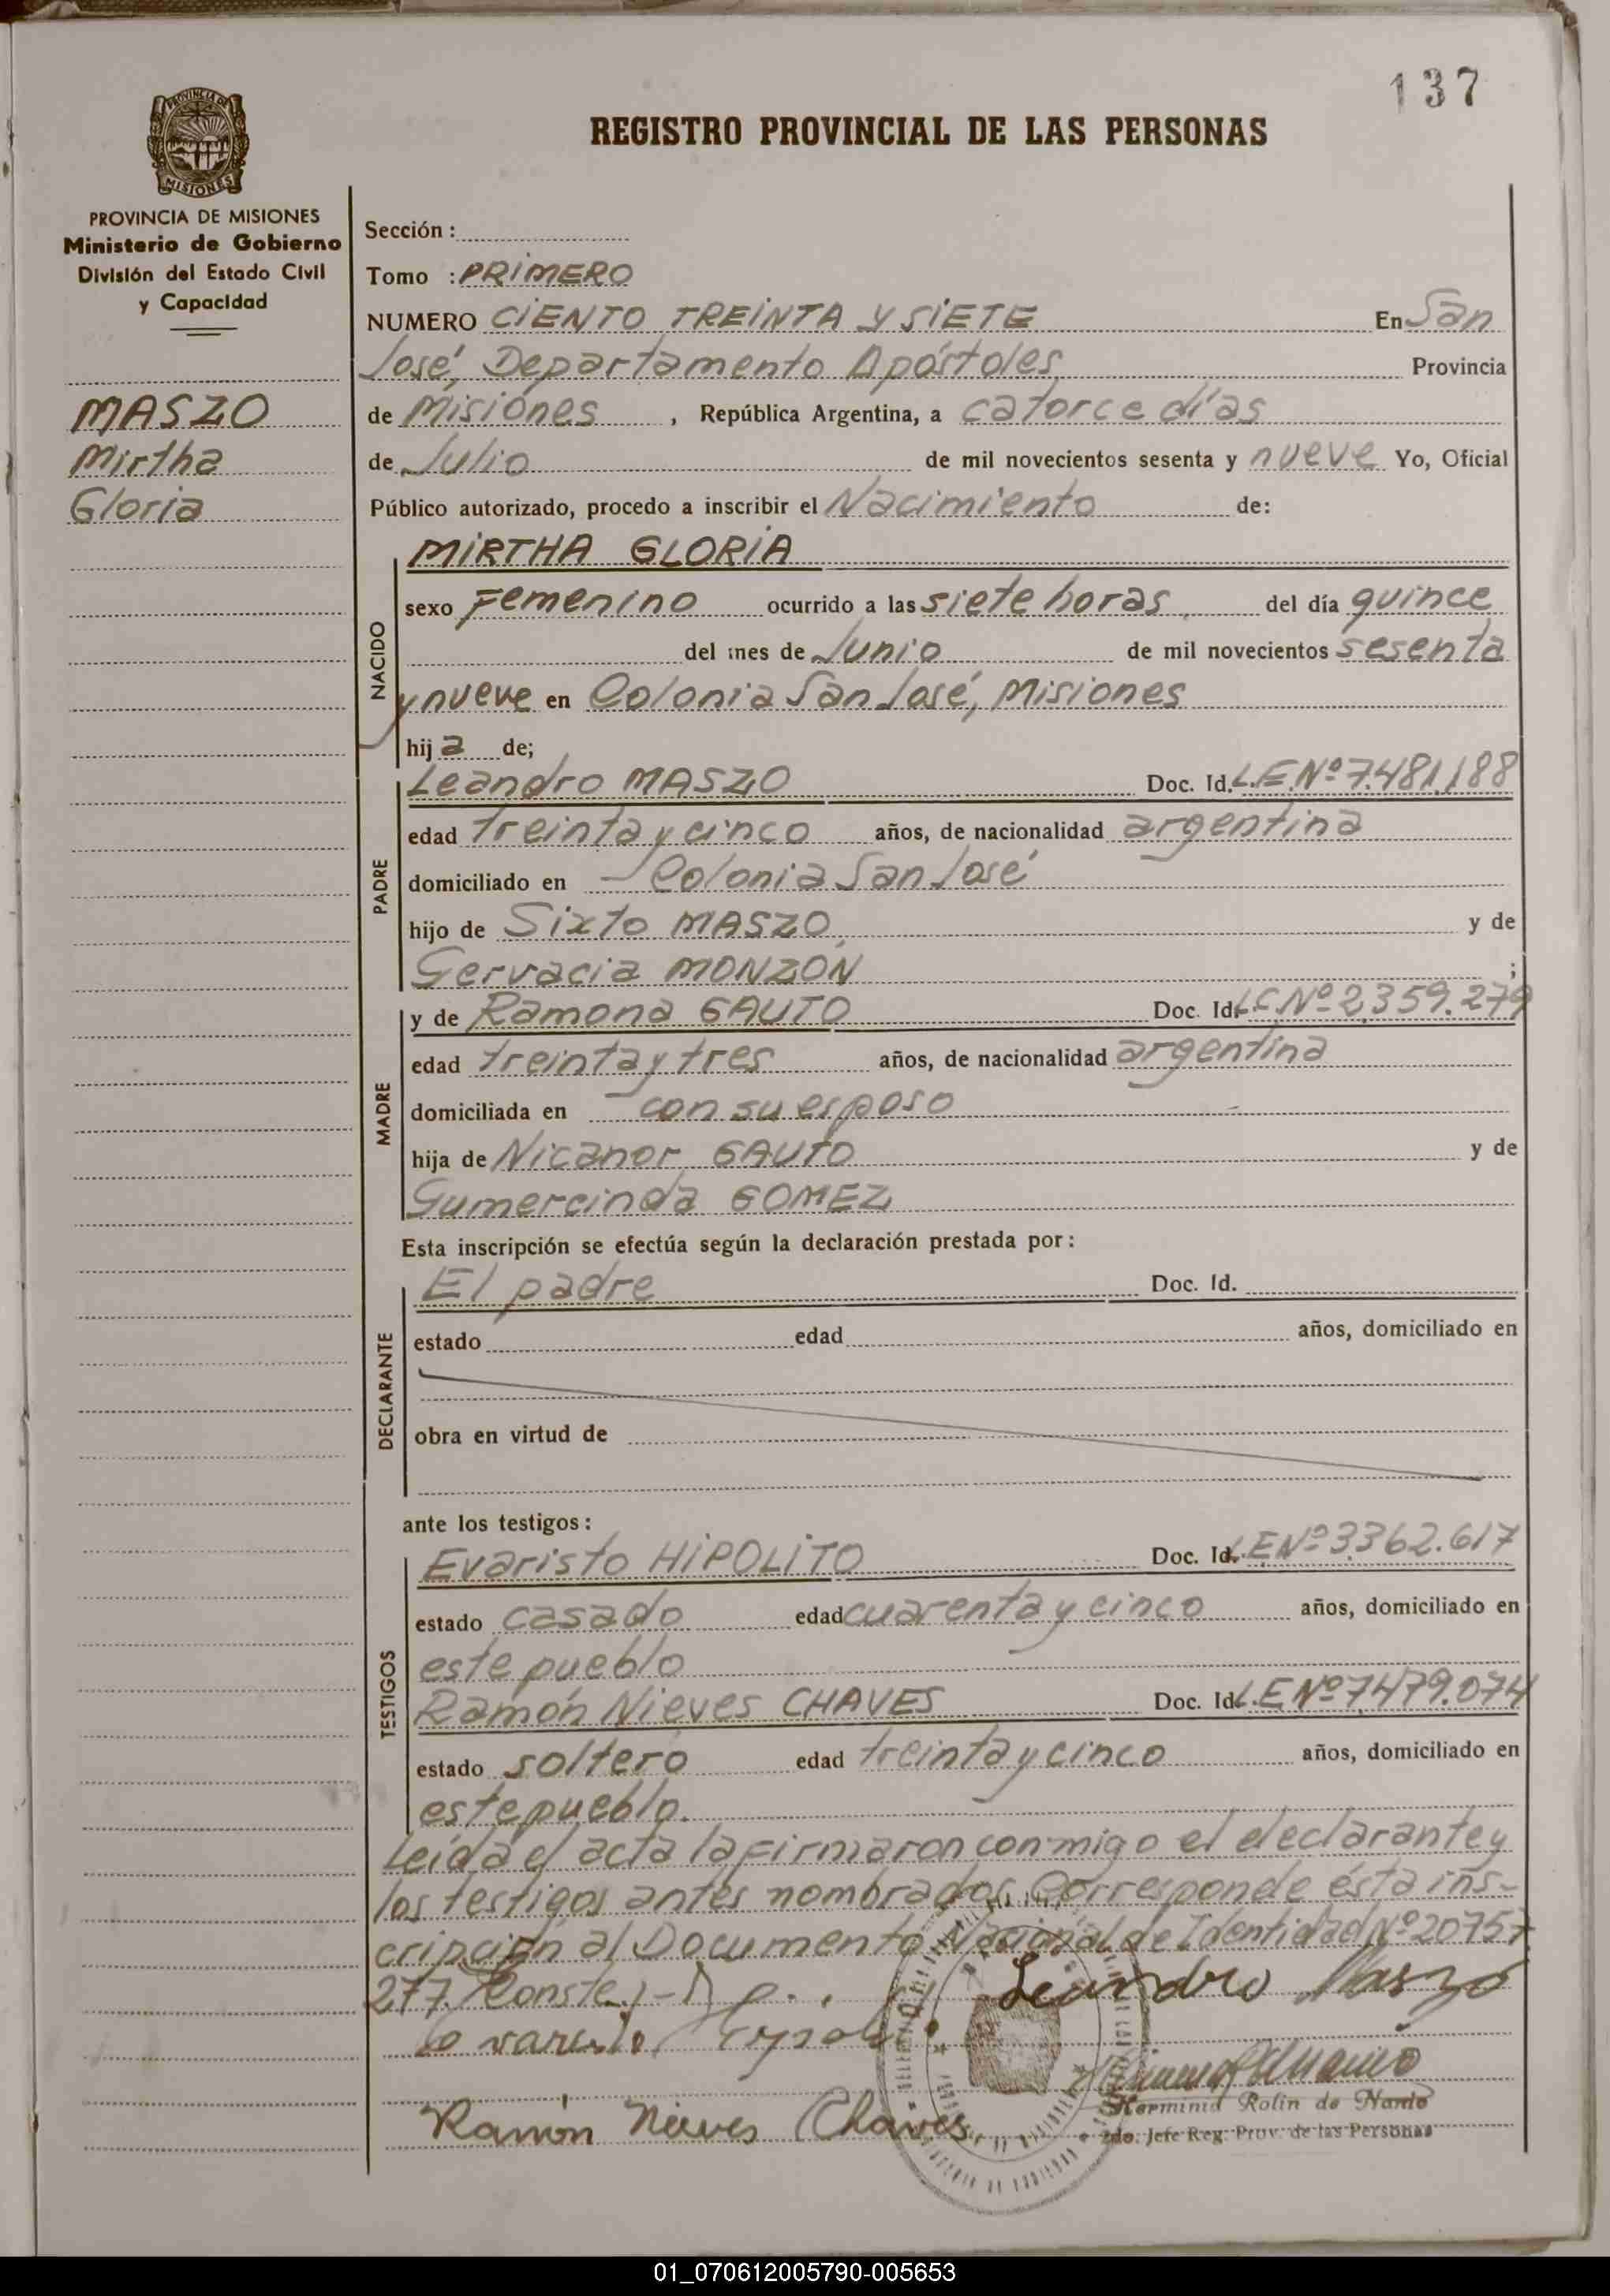 137
REGISTRO PROVINCIAL DE LAS PERSONAS
PROVINCIA DE MISIONES
PROVINCIA DE MISIONES
Ministerio de Gobierno
División del Estado Civil
y Capacidad
MASZO
Mirtha
Gloria
Sección :
Tomo : PRIMERO
NUMERO CIENTO TREINTA Y SIETE En San
José, Departamento Apóstoles Provincia
de Misiones , República Argentina, a catorce días
de Julio de mil novecientos sesenta y nueve Yo, Oficial
Público autorizado, procedo a inscribir el Nacimiento de:
NACIDO
MIRTHA GLORIA
sexo Femenino ocurrido a las siete horas del día quince
del mes de Junio de mil novecientos sesenta
y nueve en Colonia San José, Misiones
hija de;
PADRE
Leandro MASZO Doc. Id. L.E.Nº 7.481.188
edad treinta y cinco años, de nacionalidad argentina
domiciliado en Colonia San José
hijo de Sixto MASZO, y de
Gervacia MONZON ;
MADRE
y de Ramona GAUTO Doc. Id. L.C.Nº 2.359.279
edad treinta y tres años, de nacionalidad argentina
domiciliada en con su esposo
hija de Nicanor GAUTO y de
Gumercinda GOMEZ
Esta inscripción se efectúa según la declaración prestada por :
DECLARANTE
El padre Doc. Id.
estado edad años, domiciliado en
obra en virtud de
ante los testigos :
TESTIGOS
Evaristo HIPOLITO Doc. Id. L.E.Nº 3.362.617
estado casado edad cuarenta y cinco años, domiciliado en
este pueblo
Ramón Nieves CHAVES Doc. Id. L.E.Nº 7.479.074
estado soltero edad treinta y cinco años, domiciliado en
este pueblo.
Leída el acta la firmaron conmigo el declarante y
los testigos antes nombrados. Corresponde ésta ins-
cripción al Documento Nacional de Identidad Nº 20757
277. Conste.)-
Leandro Maszo
Ramón Nieves Chaves
Herminia Rolin de Nardo
2do. Jefe Reg. Prov. de las Personas
01_070612005790-005653